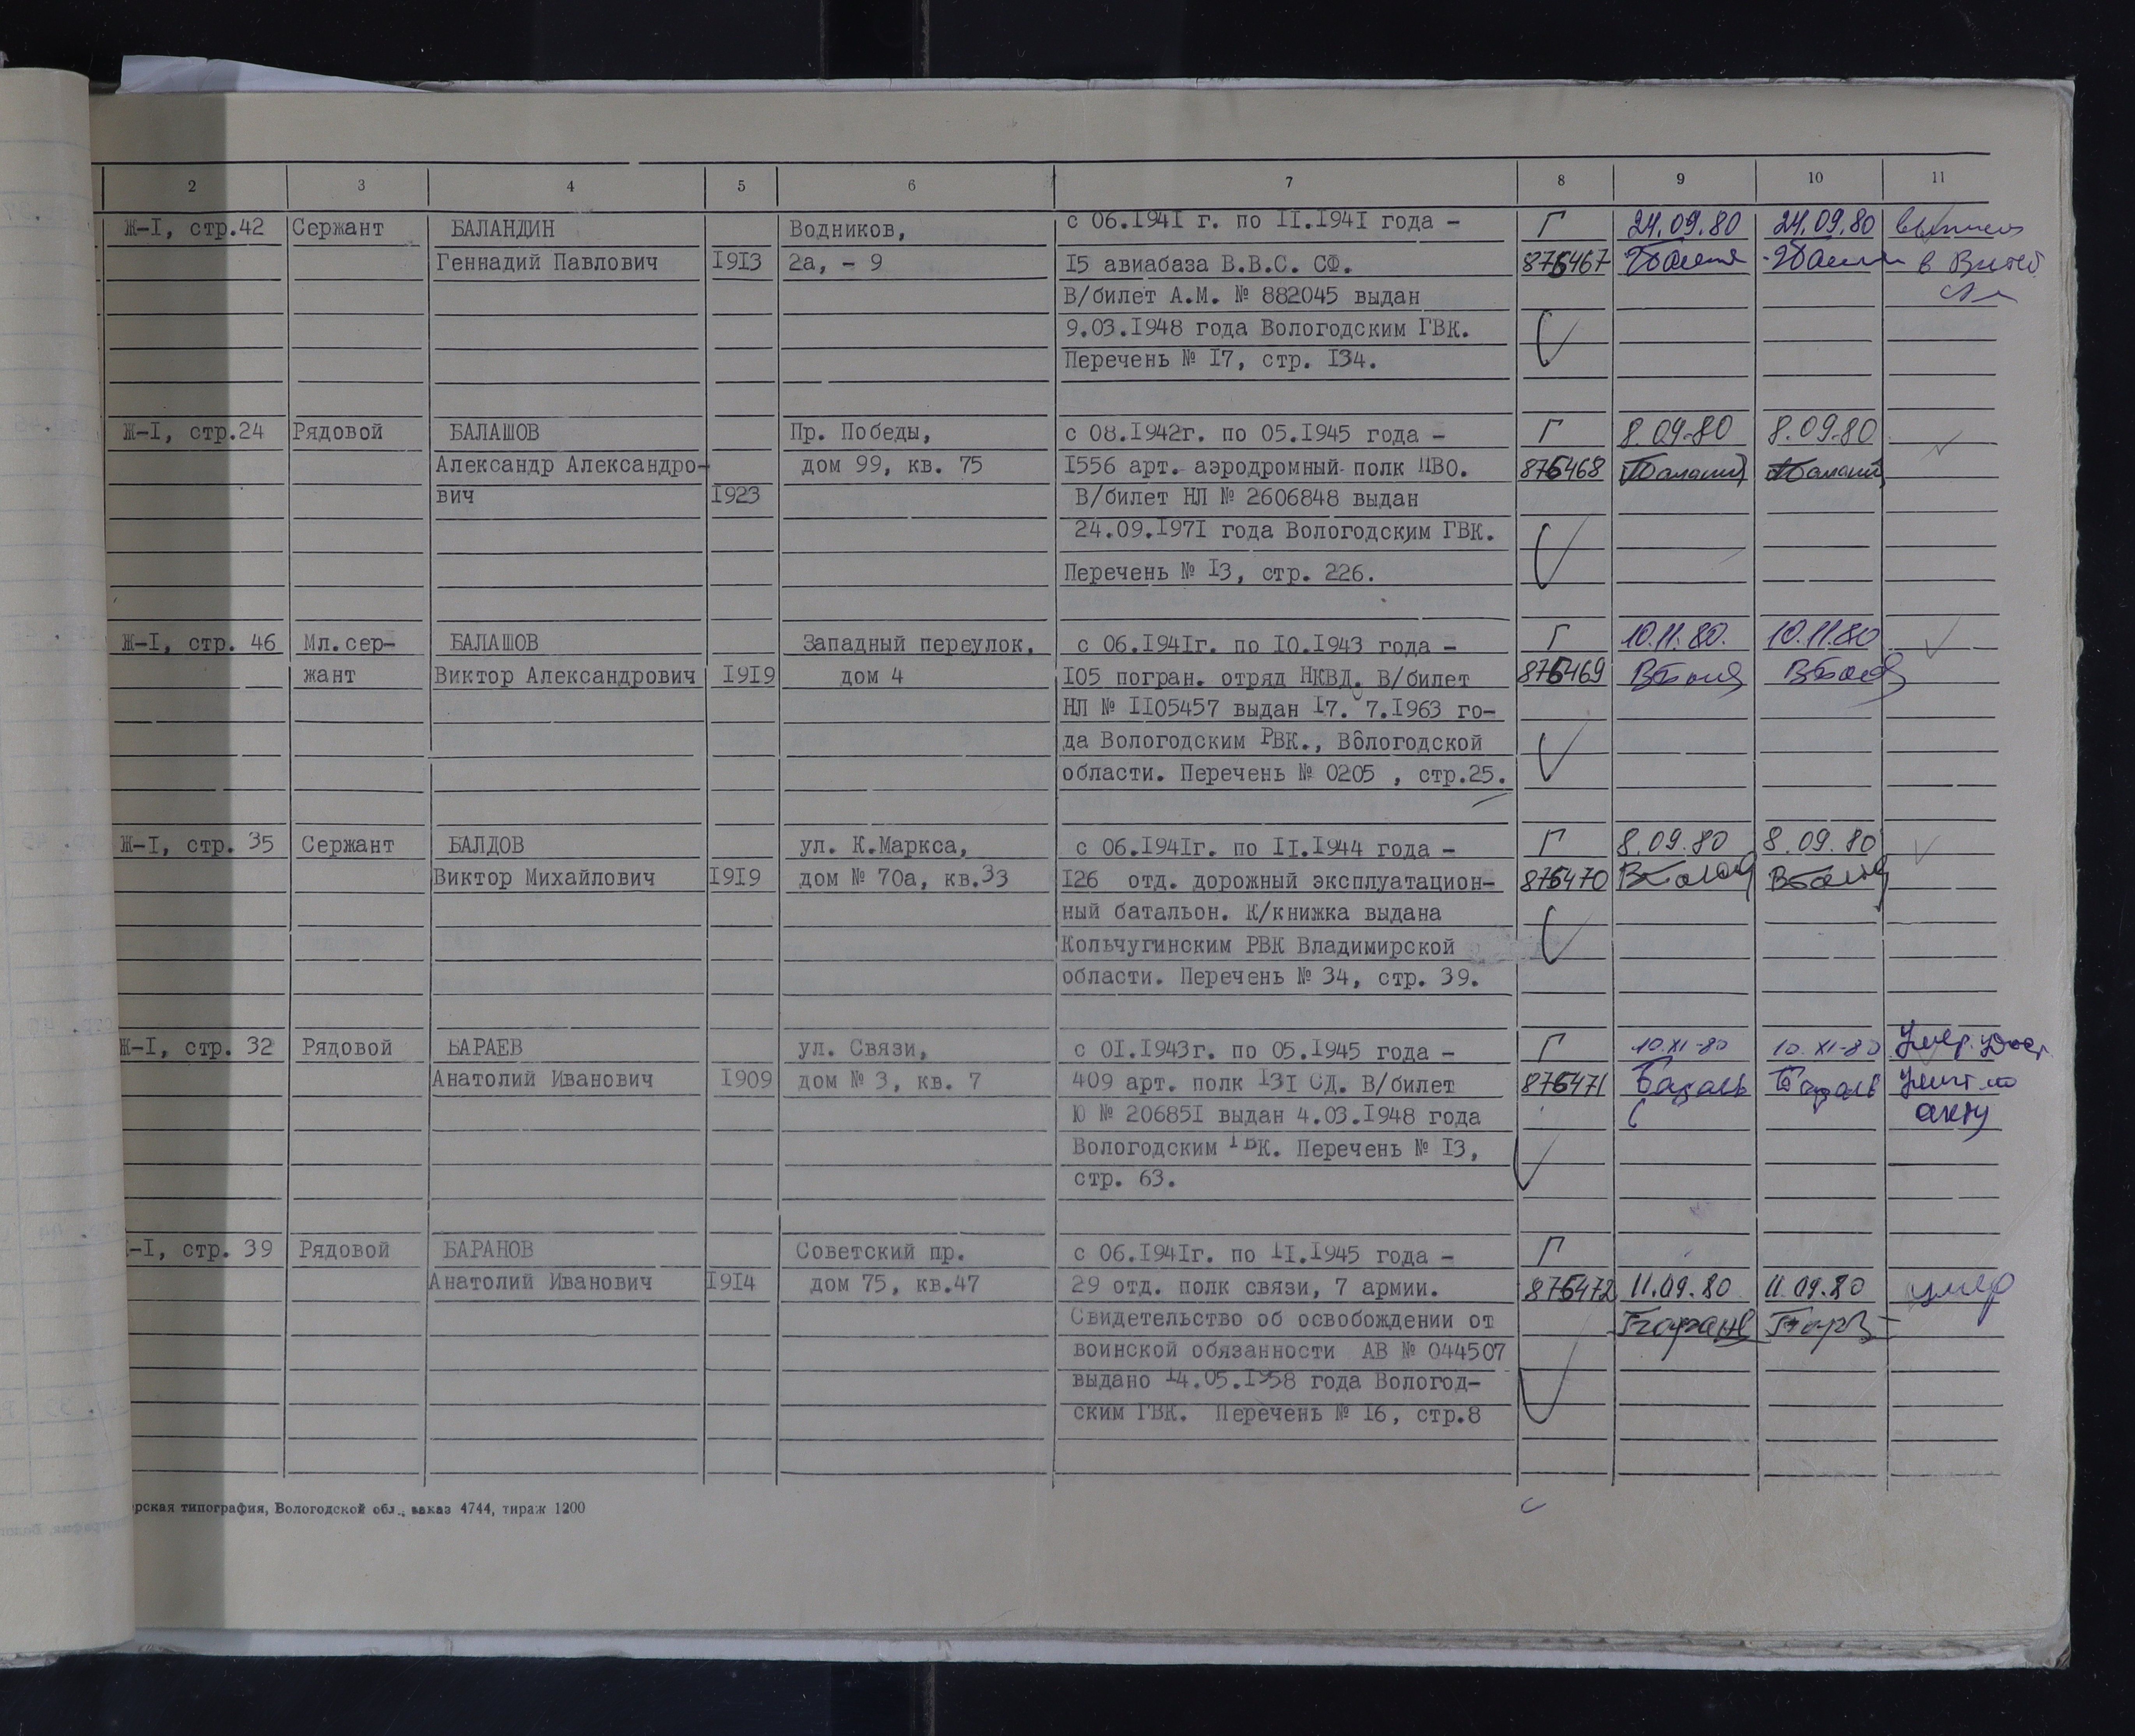 2 3 4 5 6 7 8 9 10 11
Ж-I, стр.42 Сержант БАЛАНДИН Водников, с 06.I94I г. по II.I94I года - Г 24.09.80 24.09.80
Геннадий Павлович I9I3 2а, - 9 I5 авиабаза В.В.С. СФ. 876467 в
В/билет А.М. № 882045 выдан
9.03.I948 года Вологодским ГВК.
Перечень № I7, стр. I34.
Ж-I, стр.24 Рядовой БАЛАШОВ Пр. Победы, с 08.I942г. по 05.I945 года - Г 8.09.80 8.09.80
Александр Александро- дом 99, кв. 75 I556 арт. аэродромный полк ПВО. 876468
вич I923 В/билет НЛ № 2606848 выдан
24.09.I97I года Вологодским ГВК.
Перечень № I3, стр. 226.
Ж-I, стр. 46 Мл.сер- БАЛАШОВ Западный переулок, с 06.I94Iг. по I0.I943 года - Г 10.11.80. 10.11.80
жант Виктор Александрович I9I9 дом 4 I05 погран. отряд НКВД. В/билет 876469
НЛ № II05457 выдан I7. 7.I963 го-
да Вологодским РВК., Вологодской
области. Перечень № 0205 , стр.25.
Ж-I, стр. 35 Сержант БАЛДОВ ул. К.Маркса, с 06.I94Iг. по II.I944 года - Г 8.09.80 8.09.80
Виктор Михайлович I9I9 дом № 70а, кв.33 I26 отд. дорожный эксплуатацион- 876470
ный батальон. К/книжка выдана
Кольчугинским РВК Владимирской
области. Перечень № 34, стр. 39.
Ж-I, стр. 32 Рядовой БАРАЕВ ул. Связи, с 0I.I943г. по 05.I945 года - Г 10.XI-80 10.XI-80 Умер.
Анатолий Иванович I909 дом № 3, кв. 7 409 арт. полк I3I СД. В/билет 876471
Ю № 20685I выдан 4.03.I948 года акту
Вологодским ГВК. Перечень № I3,
стр. 63.
-I, стр. 39 Рядовой БАРАНОВ Советский пр. с 06.I94Iг. по II.I945 года - Г
Анатолий Иванович I9I4 дом 75, кв.47 29 отд. полк связи, 7 армии. 876472 11.09.80 11.09.80 умер
Свидетельство об освобождении от
воинской обязанности АВ № 044507
выдано I4.05.I958 года Вологод-
ским ГВК. Перечень № I6, стр.8
рская типография, Вологодской обл., заказ 4744, тираж 1200